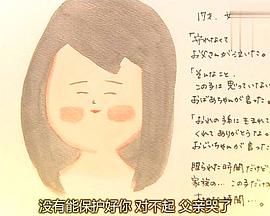 17才、女
「守れなくて
お父さんが泣いた。
「そんなこと、
この子は思っていない
おばあちゃんが言った
「おれの孫に生まれて
くれてありがとうよ。
おじいちゃんが言った
限られた時間だけど
家族の…
没有能保护好你 对不起 父亲哭了